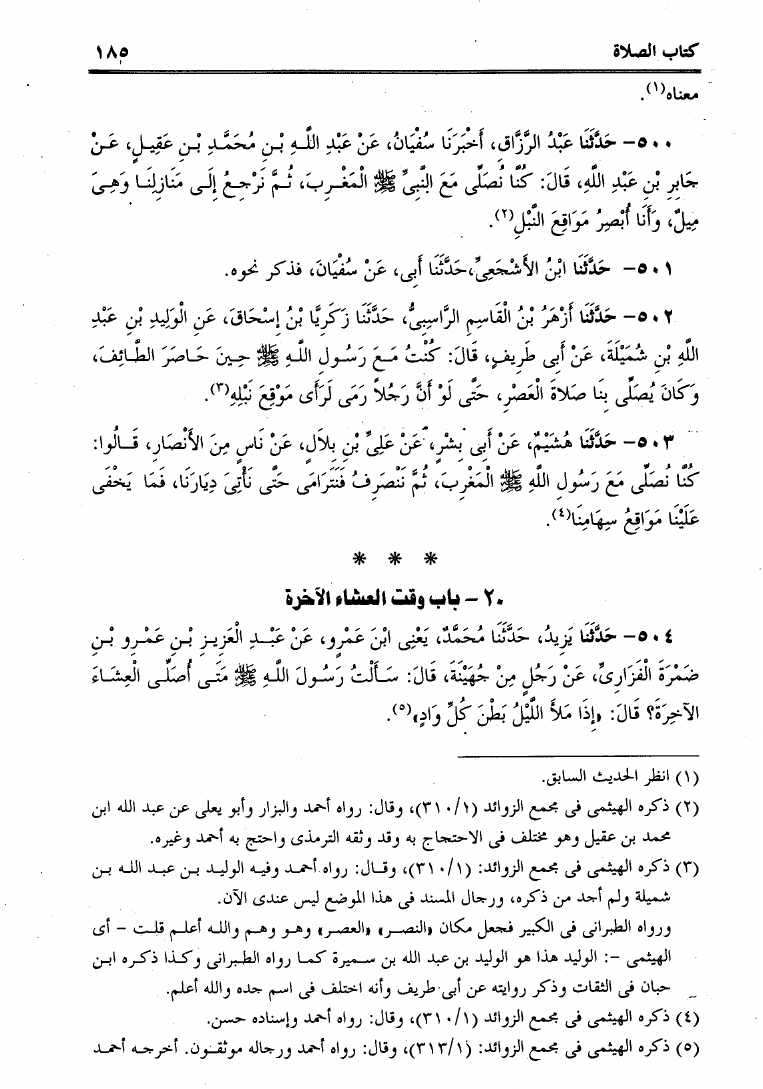 كتاب الصلاة ١٨٥
معناه(١).
٥٠٠– حَدَّثَنَا عَبْدُ الرَّزَّاقِ، أَخْبَرَنَا سُفْيَانُ، عَنْ عَبْدِ اللَّهِ بْنِ مُحَمَّدِ بْنِ عَقِيلٍ، عَنْ
جَابِرِ بْنِ عَبْدِ اللَّهِ، قَالَ: كُنَّا نُصَلِّى مَعَ النَّبِىِّ ﷺ الْمَغْرِبَ، ثُمَّ نَرْجِعُ إِلَى مَنَازِلِنَا وَهِىَ
مِيلٌ، وَأَنَا أُبْصِرُ مَوَاقِعَ النَّبْلِ(٢).
٥٠١– حَدَّثَنَا ابْنُ الأَشْجَعِىِّ، حَدَّثَنَا أَبِى، عَنْ سُفْيَانَ، فذكر نحوه.
٥٠٢– حَدَّثَنَا أَزْهَرُ بْنُ الْقَاسِمِ الرَّاسِبِىُّ، حَدَّثَنَا زَكَرِيَّا بْنُ إِسْحَاقَ، عَنِ الْوَلِيدِ بْنِ عَبْدِ
اللَّهِ بْنِ شُمَيْلَةَ، عَنْ أَبِى طَرِيفٍ، قَالَ: كُنْتُ مَعَ رَسُولِ اللَّهِ ﷺ حِينَ حَاصَرَ الطَّائِفَ،
وَكَانَ يُصَلِّى بِنَا صَلاَةَ الْعَصْرِ، حَتَّى لَوْ أَنَّ رَجُلاً رَمَى لَرَأَى مَوْقِعَ نَبْلِهِ(٣).
٥٠٣– حَدَّثَنَا هُشَيْمٌ، عَنْ أَبِى بِشْرٍ، عَنْ عَلِىِّ بْنِ بِلاَلٍ، عَنْ نَاسٍ مِنَ الأَنْصَارِ، قَالُوا:
كُنَّا نُصَلِّى مَعَ رَسُولِ اللَّهِ ﷺ الْمَغْرِبَ، ثُمَّ نَنْصَرِفُ فَنَتَرَامَى حَتَّى نَأْتِىَ دِيَارَنَا، فَمَا يَخْفَى
عَلَيْنَا مَوَاقِعُ سِهَامِنَا(٤).
* * *
٢٠– باب وقت العشاء الآخرة
٥٠٤– حَدَّثَنَا يَزِيدُ، حَدَّثَنَا مُحَمَّدٌ، يَعْنِى ابْنَ عَمْرٍو، عَنْ عَبْدِ الْعَزِيزِ بْنِ عَمْرِو بْنِ
ضَمْرَةَ الْفَزَارِىِّ، عَنْ رَجُلٍ مِنْ جُهَيْنَةَ، قَالَ: سَأَلْتُ رَسُولَ اللَّهِ ﷺ مَتَى أُصَلِّى الْعِشَاءَ
الآخِرَةَ؟ قَالَ: «إِذَا مَلأَ اللَّيْلُ بَطْنَ كُلِّ وَادٍ»(٥).
(١) انظر الحديث السابق.
(٢) ذكره الهيثمى فى مجمع الزوائد (٣١٠/١)، وقال: رواه أحمد والبزار وأبو يعلى عن عبد الله ابن
محمد بن عقيل وهو مختلف فى الاحتجاج به وقد وثقه الترمذى واحتج به أحمد وغيره.
(٣) ذكره الهيثمى فى مجمع الزوائد: (٣١٠/١)، وقال: رواه أحمد وفيه الوليد بن عبد الله بن
شميلة ولم أجد من ذكره، ورجال المسند فى هذا الموضع ليس عندى الآن.
ورواه الطبرانى فى الكبير فجعل مكان «النصر» «العصر» وهو وهم والله أعلم قلت – أى
الهيثمى –: الوليد هذا هو الوليد بن عبد الله بن سميرة كما رواه الطبرانى وكذا ذكره ابن
حبان فى الثقات وذكر روايته عن أبى طريف وأنه اختلف فى اسم جده والله أعلم.
(٤) ذكره الهيثمى فى مجمع الزوائد: (٣١٠/١)، وقال: رواه أحمد وإسناده حسن.
(٥) ذكره الهيثمى فى مجمع الزوائد: (٣١٣/١)، وقال: رواه أحمد ورجاله موثقون. أخرجه أحمد